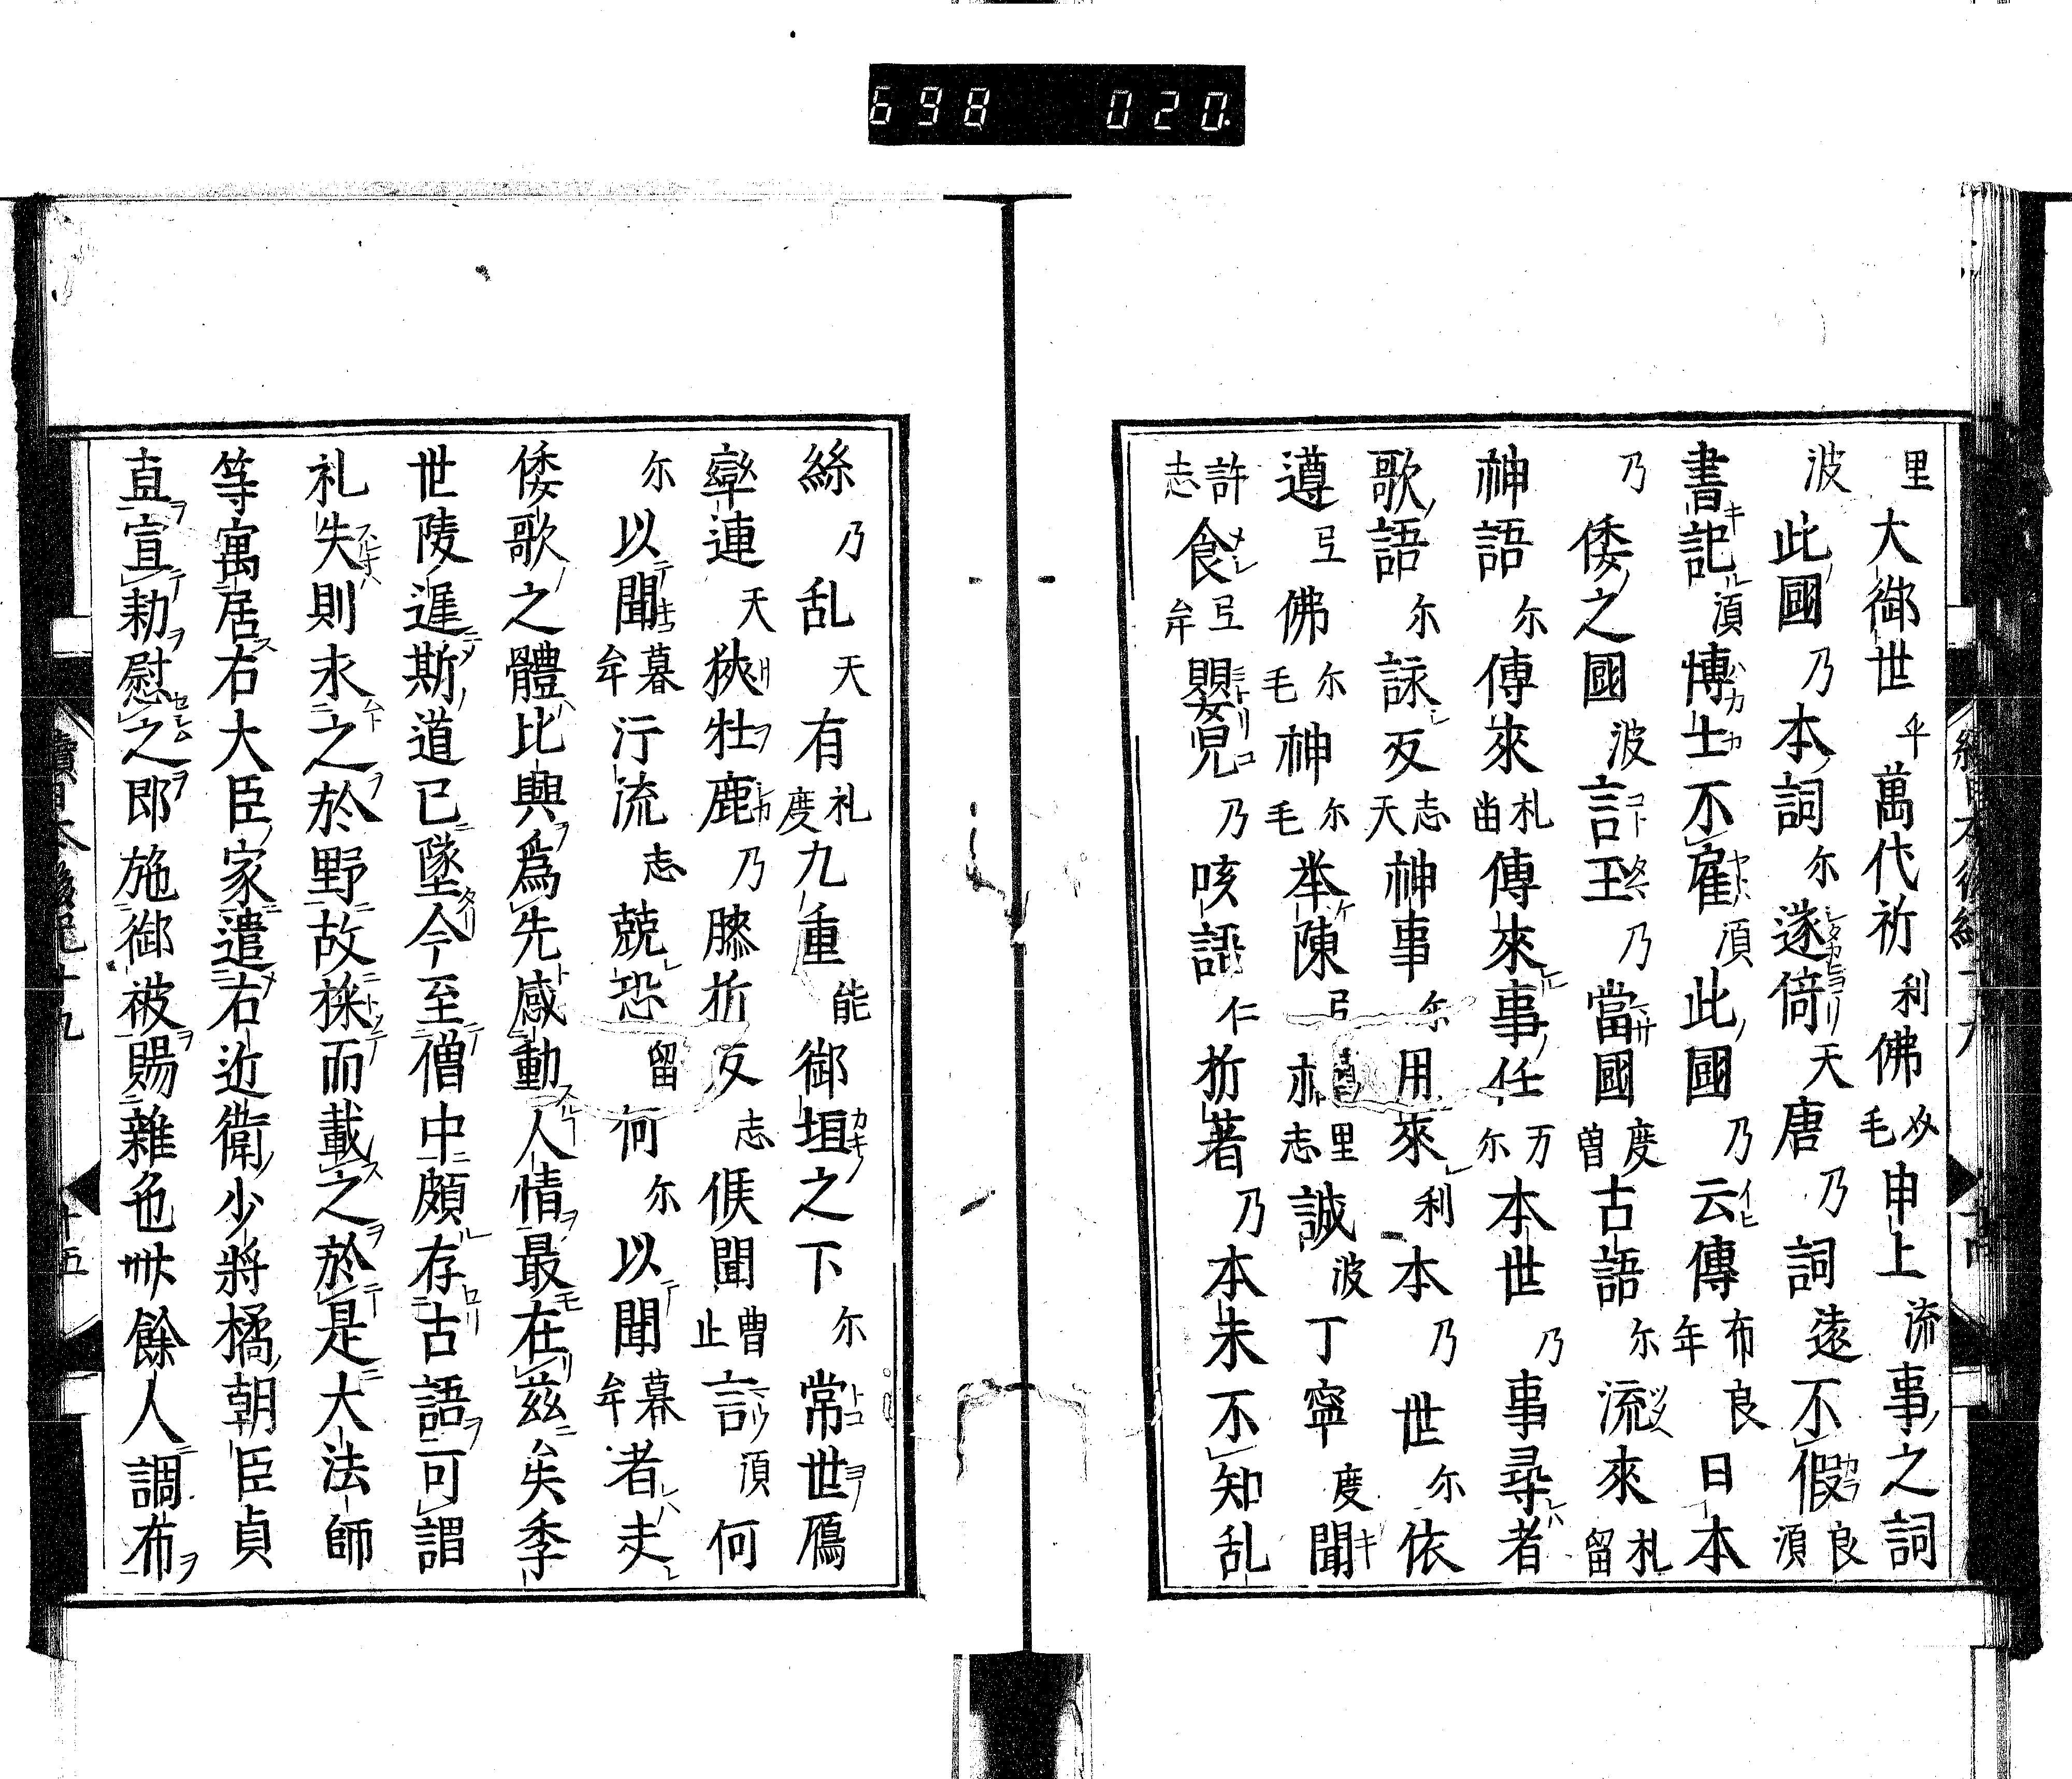 698 020
里大御世乎萬代祈利佛尓毛申上流事之詞
波此國乃本詞尓遂倚天唐乃詞遠不假良須
書記須博士不雇須此國乃云傳布良年日本
乃倭之國波言玉乃當國度曽古語尓流來礼留
神語尓傳來礼歯傳來事任万尓本世乃事尋者
歌語尓詠反志天神事尓用來利本乃世尓依
遵弖佛尓毛神尓毛挙陳弖志里誠波丁寧度聞
許志食弖牟嬰児乃咳語仁折著乃本末不知乱
絲乃乱天有礼度九重能御垣之下尓常世鴈
率連天狭牡鹿乃膝折反志候聞曹止言須何
尓以聞暮牟汙流志兢恐留何尓以聞暮牟者夫
倭歌之體比興為先感動人情最在茲矣季
世陵遅斯道已墜今至僧中頗存古語可謂
礼失則求之於野故採而載之於是大法師
等寓居右大臣家遣右近衛少将橘朝臣貞
直宣勅慰之即施御被賜雜色卅餘人調布